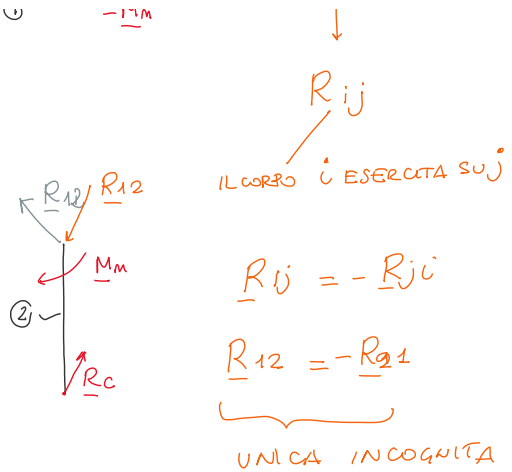 ①
- Mm
Rij
IL CORPO i ESERCITA SU j
R12
R12
Mm
Rij = - Rji
②
R12 = - R21
Rc
UNICA INCOGNITA